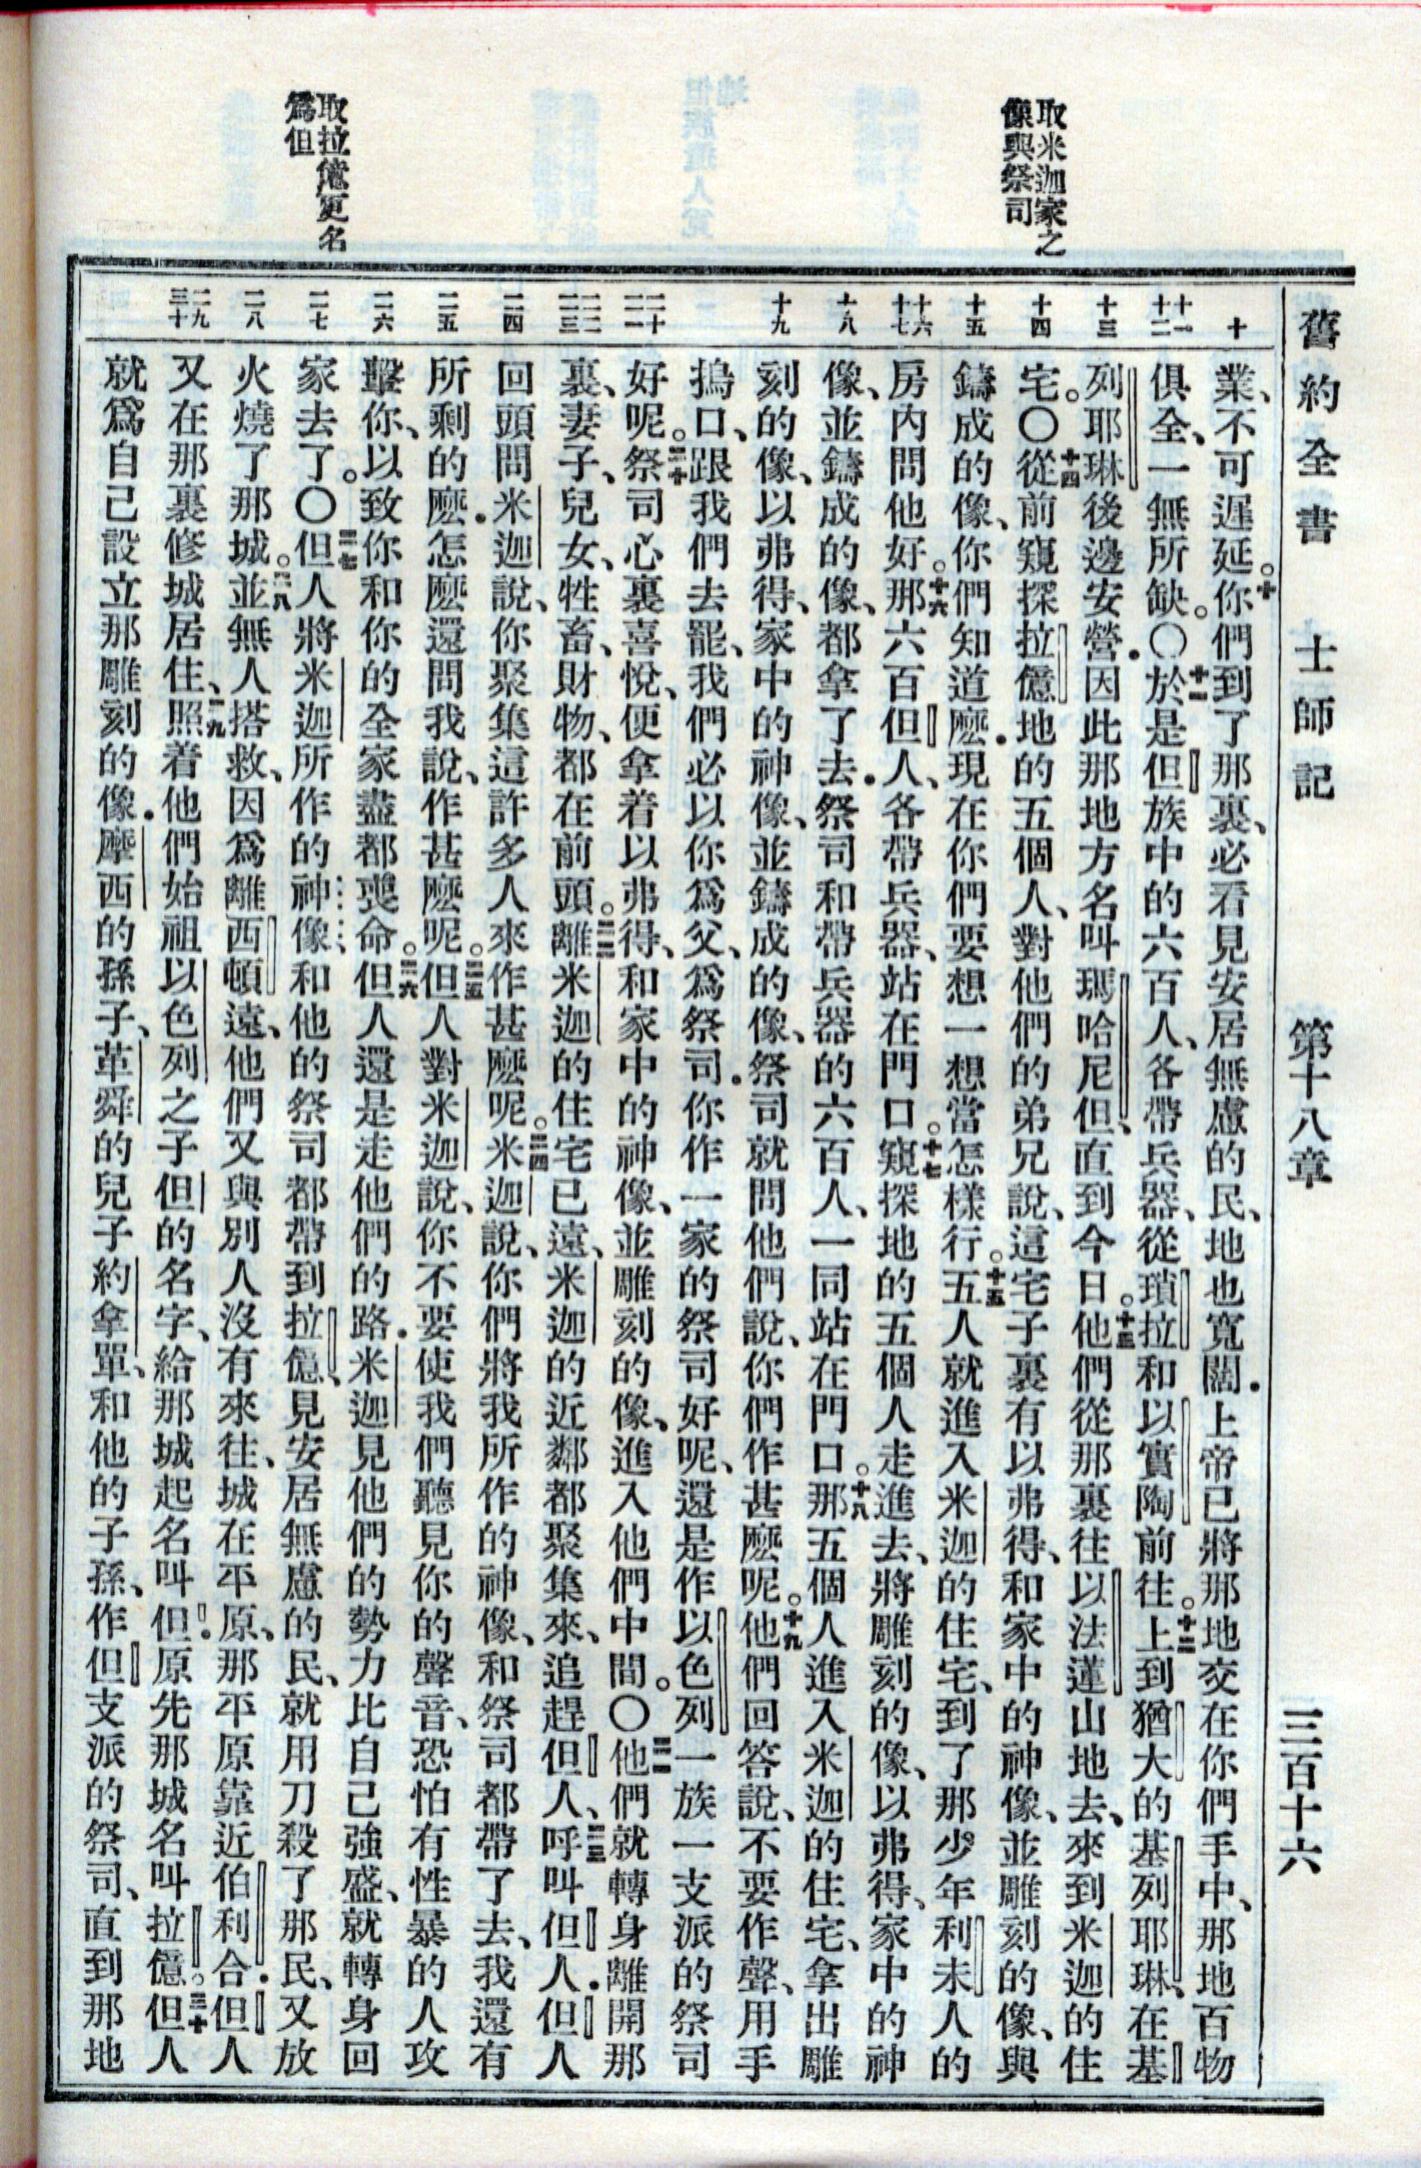 舊約全書 士師記 第十八章 三百十六
取米迦家之
像與祭司
取拉億更名
爲但
十
十一
十二
十三
十四
十五
十六
十七
十八
十九
二十
二一
二二
二三
二四
二五
二六
二七
二八
二九
三十
業、不可遲延。十你們到了那裏、必看見安居無慮的民、地也寬闊．上帝已將那地交在你們手中、那地百物
俱全、一無所缺。〇十一於是但族中的六百人、各帶兵器、從瑣拉和以實陶前往。十二上到猶大的基列耶琳、在基
列耶琳後邊安營．因此那地方名叫瑪哈尼但、直到今日。十三他們從那裏往以法蓮山地去、來到米迦的住
宅。〇十四從前窺探拉億地的五個人、對他們的弟兄說、這宅子裏有以弗得、和家中的神像、並雕刻的像、與
鑄成的像、你們知道麼．現在你們要想一想當怎樣行。十五五人就進入米迦的住宅、到了那少年利未人的
房內問他好。十六那六百但人、各帶兵器、站在門口。十七窺探地的五個人走進去、將雕刻的像、以弗得、家中的神
像、並鑄成的像、都拿了去．祭司和帶兵器的六百人、一同站在門口。十八那五個人進入米迦的住宅、拿出雕
刻的像、以弗得、家中的神像、並鑄成的像、祭司就問他們說、你們作甚麼呢。十九他們回答說、不要作聲、用手
摀口、跟我們去罷、我們必以你爲父、爲祭司．你作一家的祭司好呢、還是作以色列一族一支派的祭司
好呢。二十祭司心裏喜悅、便拿着以弗得、和家中的神像、並雕刻的像、進入他們中間。〇二一他們就轉身離開那
裏、妻子、兒女、牲畜、財物、都在前頭。二二離米迦的住宅已遠、米迦的近鄰都聚集來、追趕但人、二三呼叫但人．但人
回頭問米迦說、你聚集這許多人來作甚麼呢。二四米迦說、你們將我所作的神像、和祭司都帶了去、我還有
所剩的麼．怎麼還問我說、作甚麼呢。二五但人對米迦說、你不要使我們聽見你的聲音、恐怕有性暴的人攻
擊你、以致你和你的全家盡都喪命。二六但人還是走他們的路．米迦見他們的勢力比自己強盛、就轉身回
家去了。〇二七但人將米迦所作的神像、和他的祭司都帶到拉億、見安居無慮的民、就用刀殺了那民、又放
火燒了那城。二八並無人搭救、因爲離西頓遠、他們又與別人沒有來往、城在平原、那平原靠近伯利合．但人
又在那裏修城居住、二九照着他們始祖以色列之子但的名字、給那城起名叫但．原先那城名叫拉億。三十但人
就爲自己設立那雕刻的像．摩西的孫子、革舜的兒子約拿單、和他的子孫、作但支派的祭司、直到那地